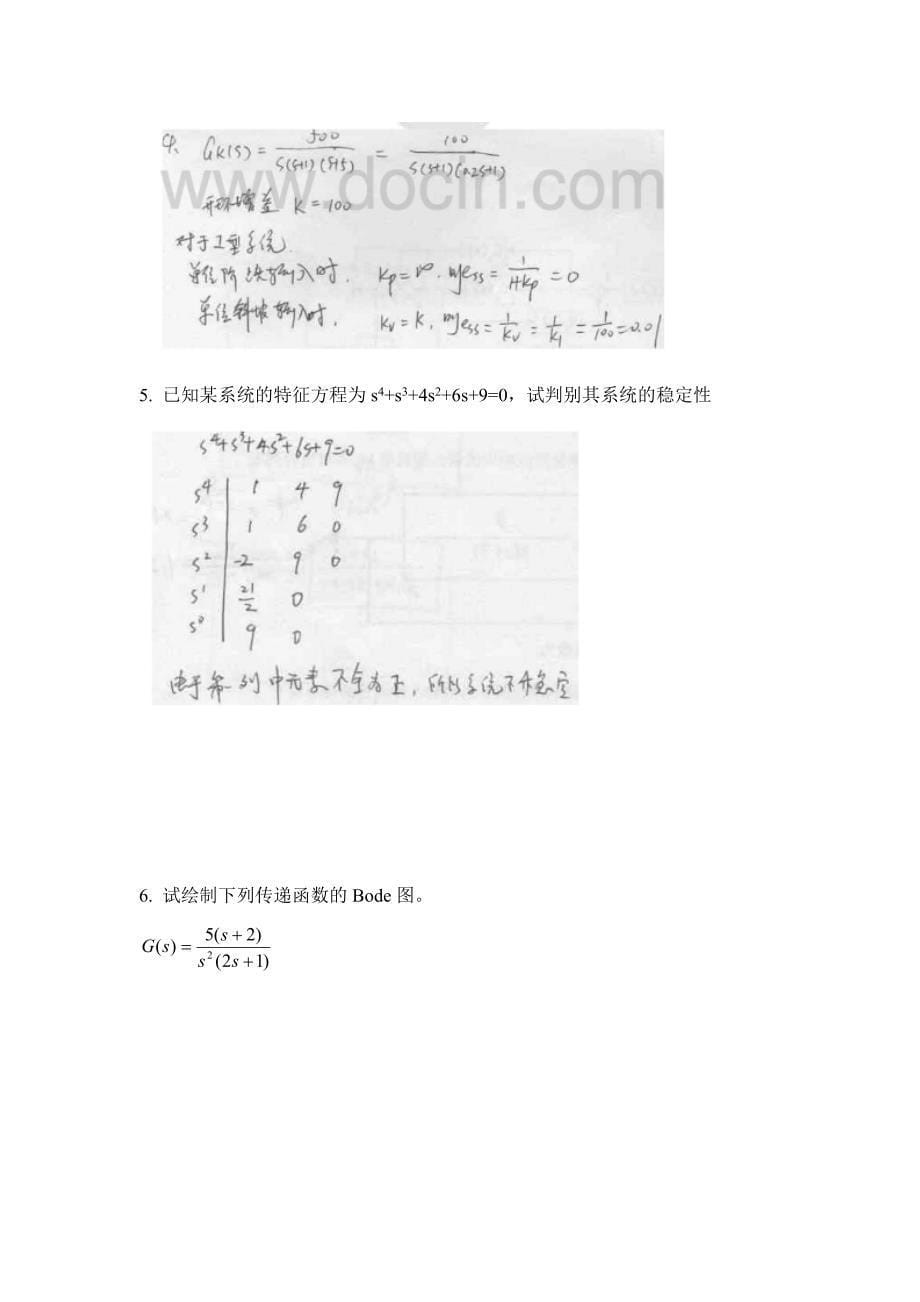 4、 GK(s) = 500/(s(s+1)(s+5)) = 100/(s(s+1)(0.2s+1))
www.docin.com
开环增益 K=100
对于I型系统
单位阶跃输入时. Kp=∞. 则ess = 1/(1+Kp) = 0
单位斜坡输入时. Kv=K. 则ess = 1/Kv = 1/K = 1/100 = 0.01
5. 已知某系统的特征方程为 s⁴+s³+4s²+6s+9=0，试判别其系统的稳定性
s⁴+s³+4s²+6s+9=0
s⁴ 1 4 9
s³ 1 6 0
s² -2 9 0
s¹ 21/2 0
s⁰ 9 0
由于第一列中元素不全为正，所以系统不稳定
6. 试绘制下列传递函数的 Bode 图。
G(s) = 5(s+2)/(s²(2s+1))